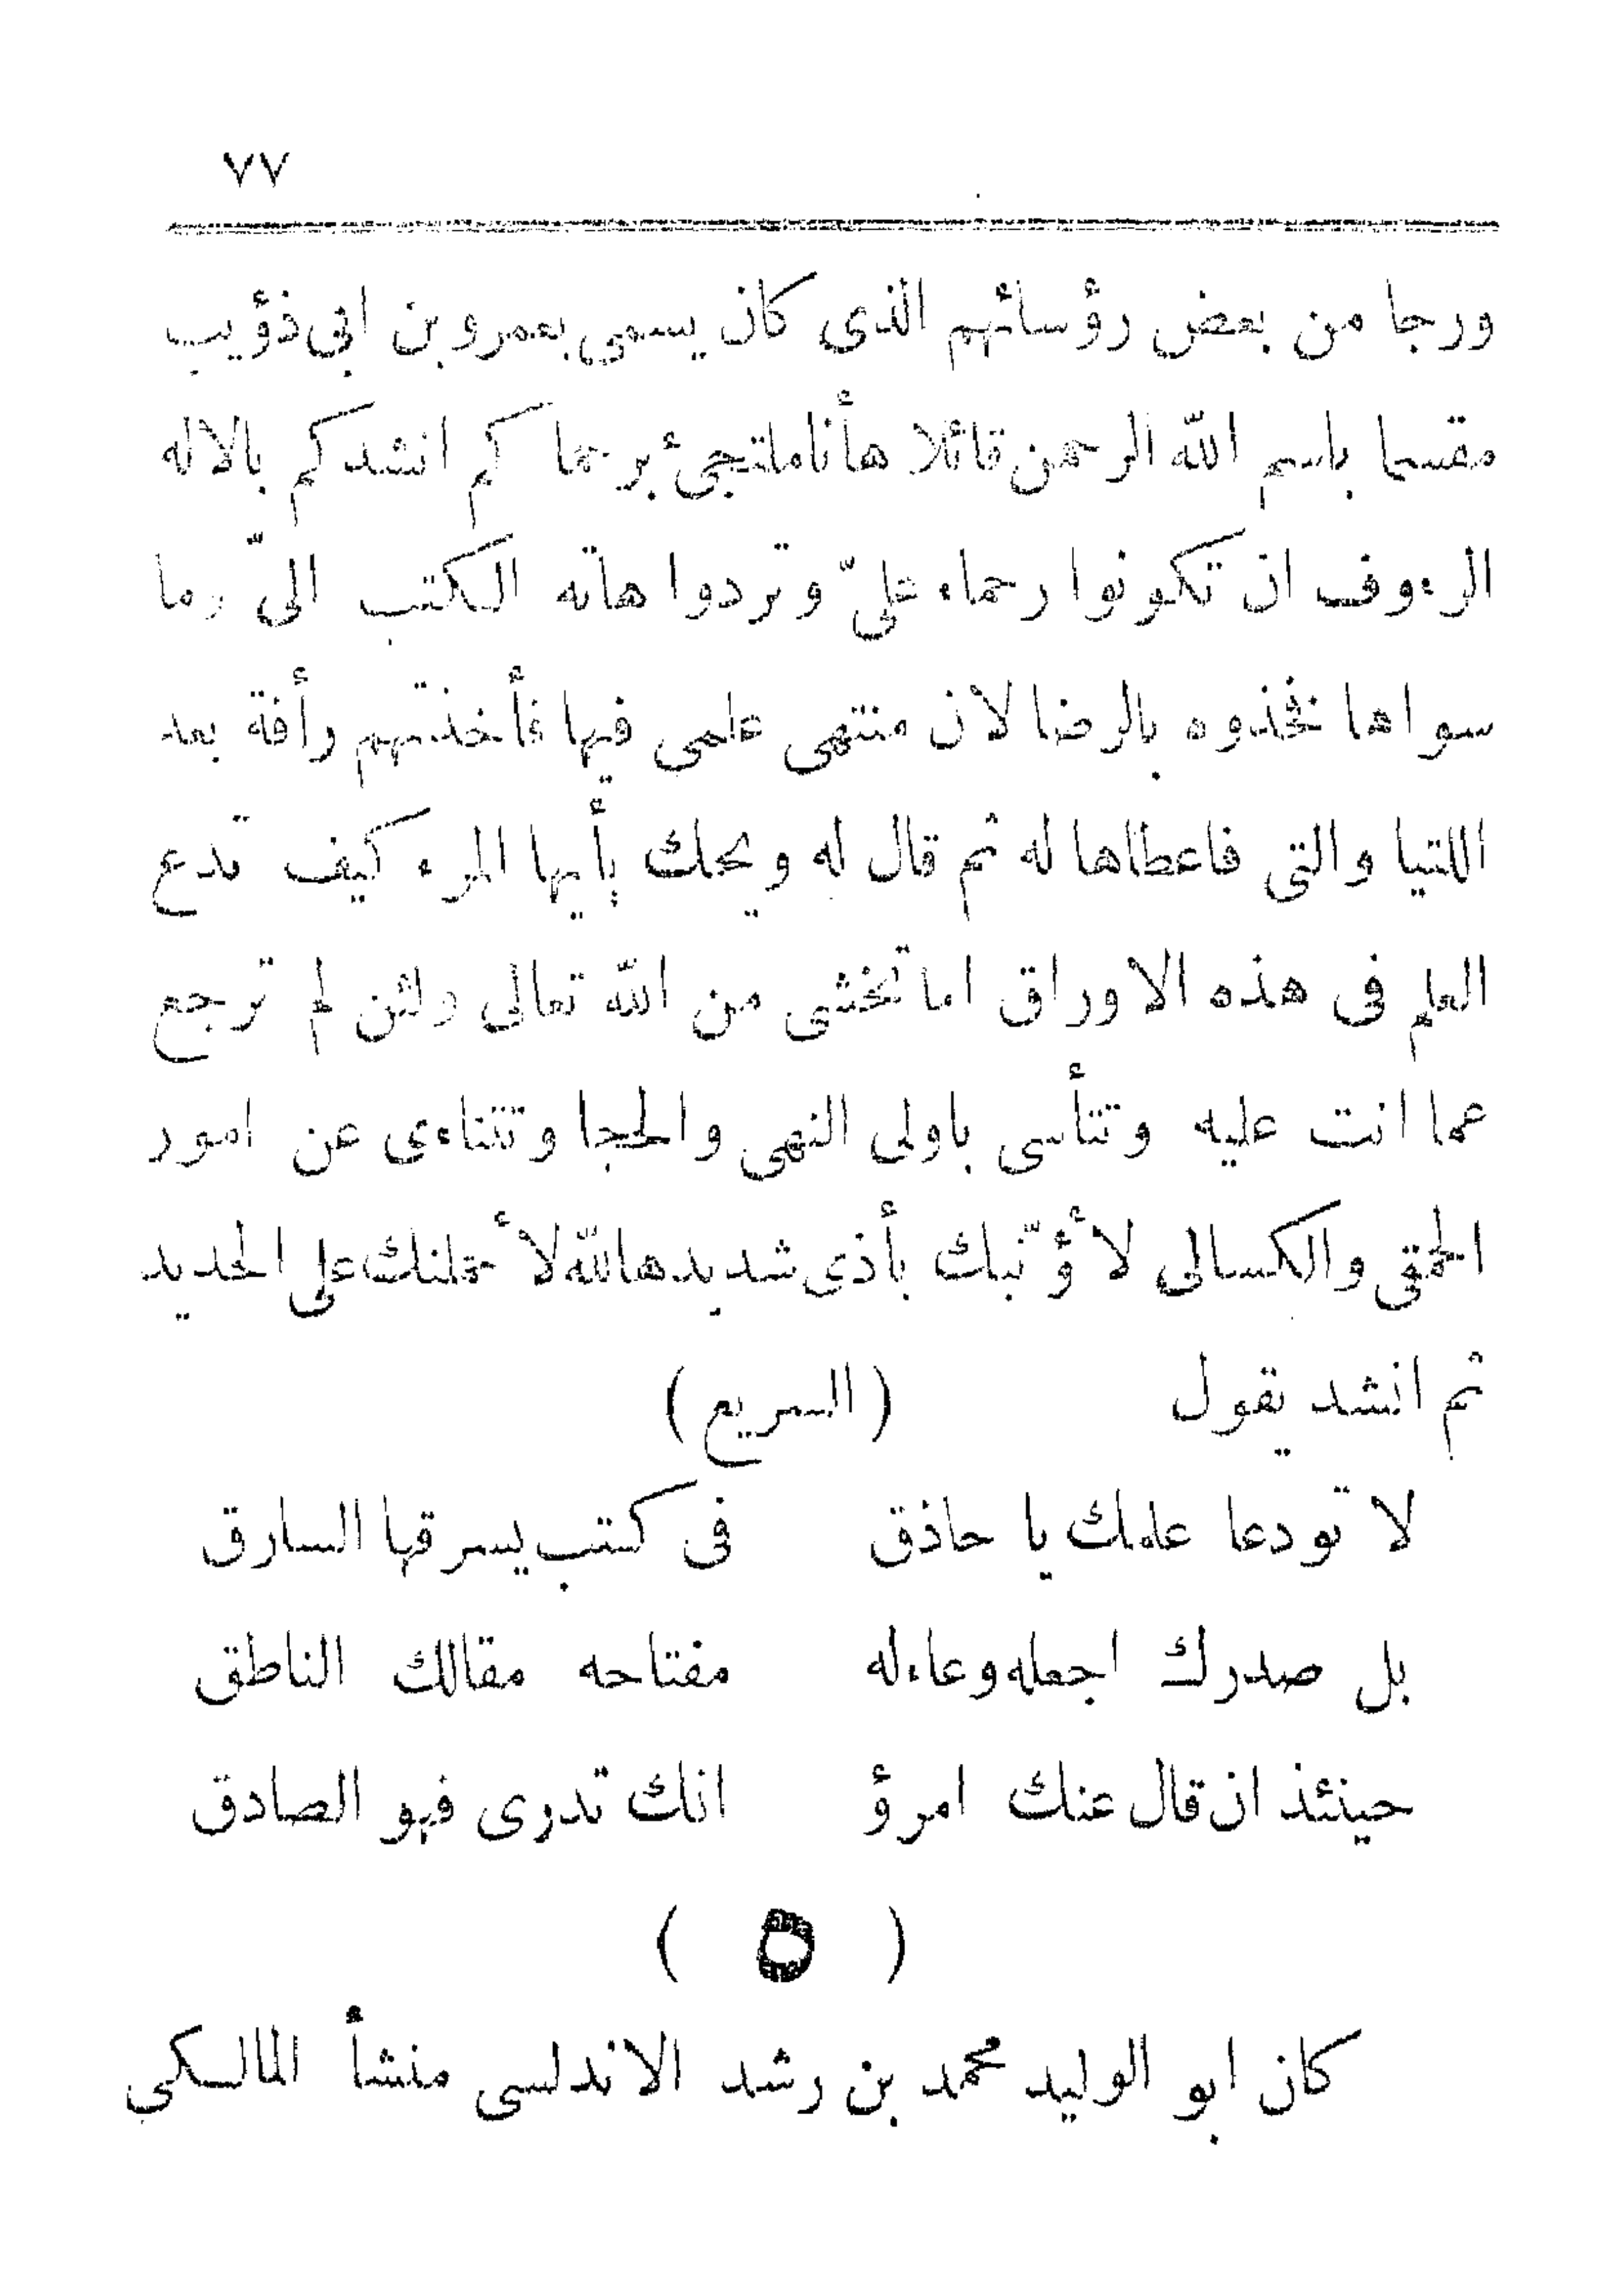 ٧٧
ورجا من بعض رؤسائهم الذى كان يسمى بعمرو بن ابى ذؤيب
مقسما باسم الله الرحمن قائلا هأنا ملتجئ برحماكم انشدكم بالاله
الرءوف ان تكونوا رحماء علىّ وتردوا هاته الكتب الىّ وما
سواها نخذوه بالرضا لان منتهى علمى فيها فأخذتهم رأفة بعد
اللتيا والتى فاعطاها له ثم قال له ويحك يأيها المرء كيف تدع
العلم فى هذه الاوراق اما تخشى من الله تعالى ولئن لم ترجع
عما انت عليه وتتأسى باولى النهى والحجا وتتناءى عن امور
الحمقى والكسالى لأؤنّبك بأذى شديدها لله لأحملنك على الحديد
ثم انشد يقول (السريع)
لا تودعا علمك يا حاذق فى كتب يسرقها السارق
بل صدرك اجعله وعاء له مفتاحه مقالك الناطق
حينئذ ان قال عنك امرؤ انك تدرى فهو الصادق
( ٥ )
كان ابو الوليد محمد بن رشد الاندلسى منشأ المالكى